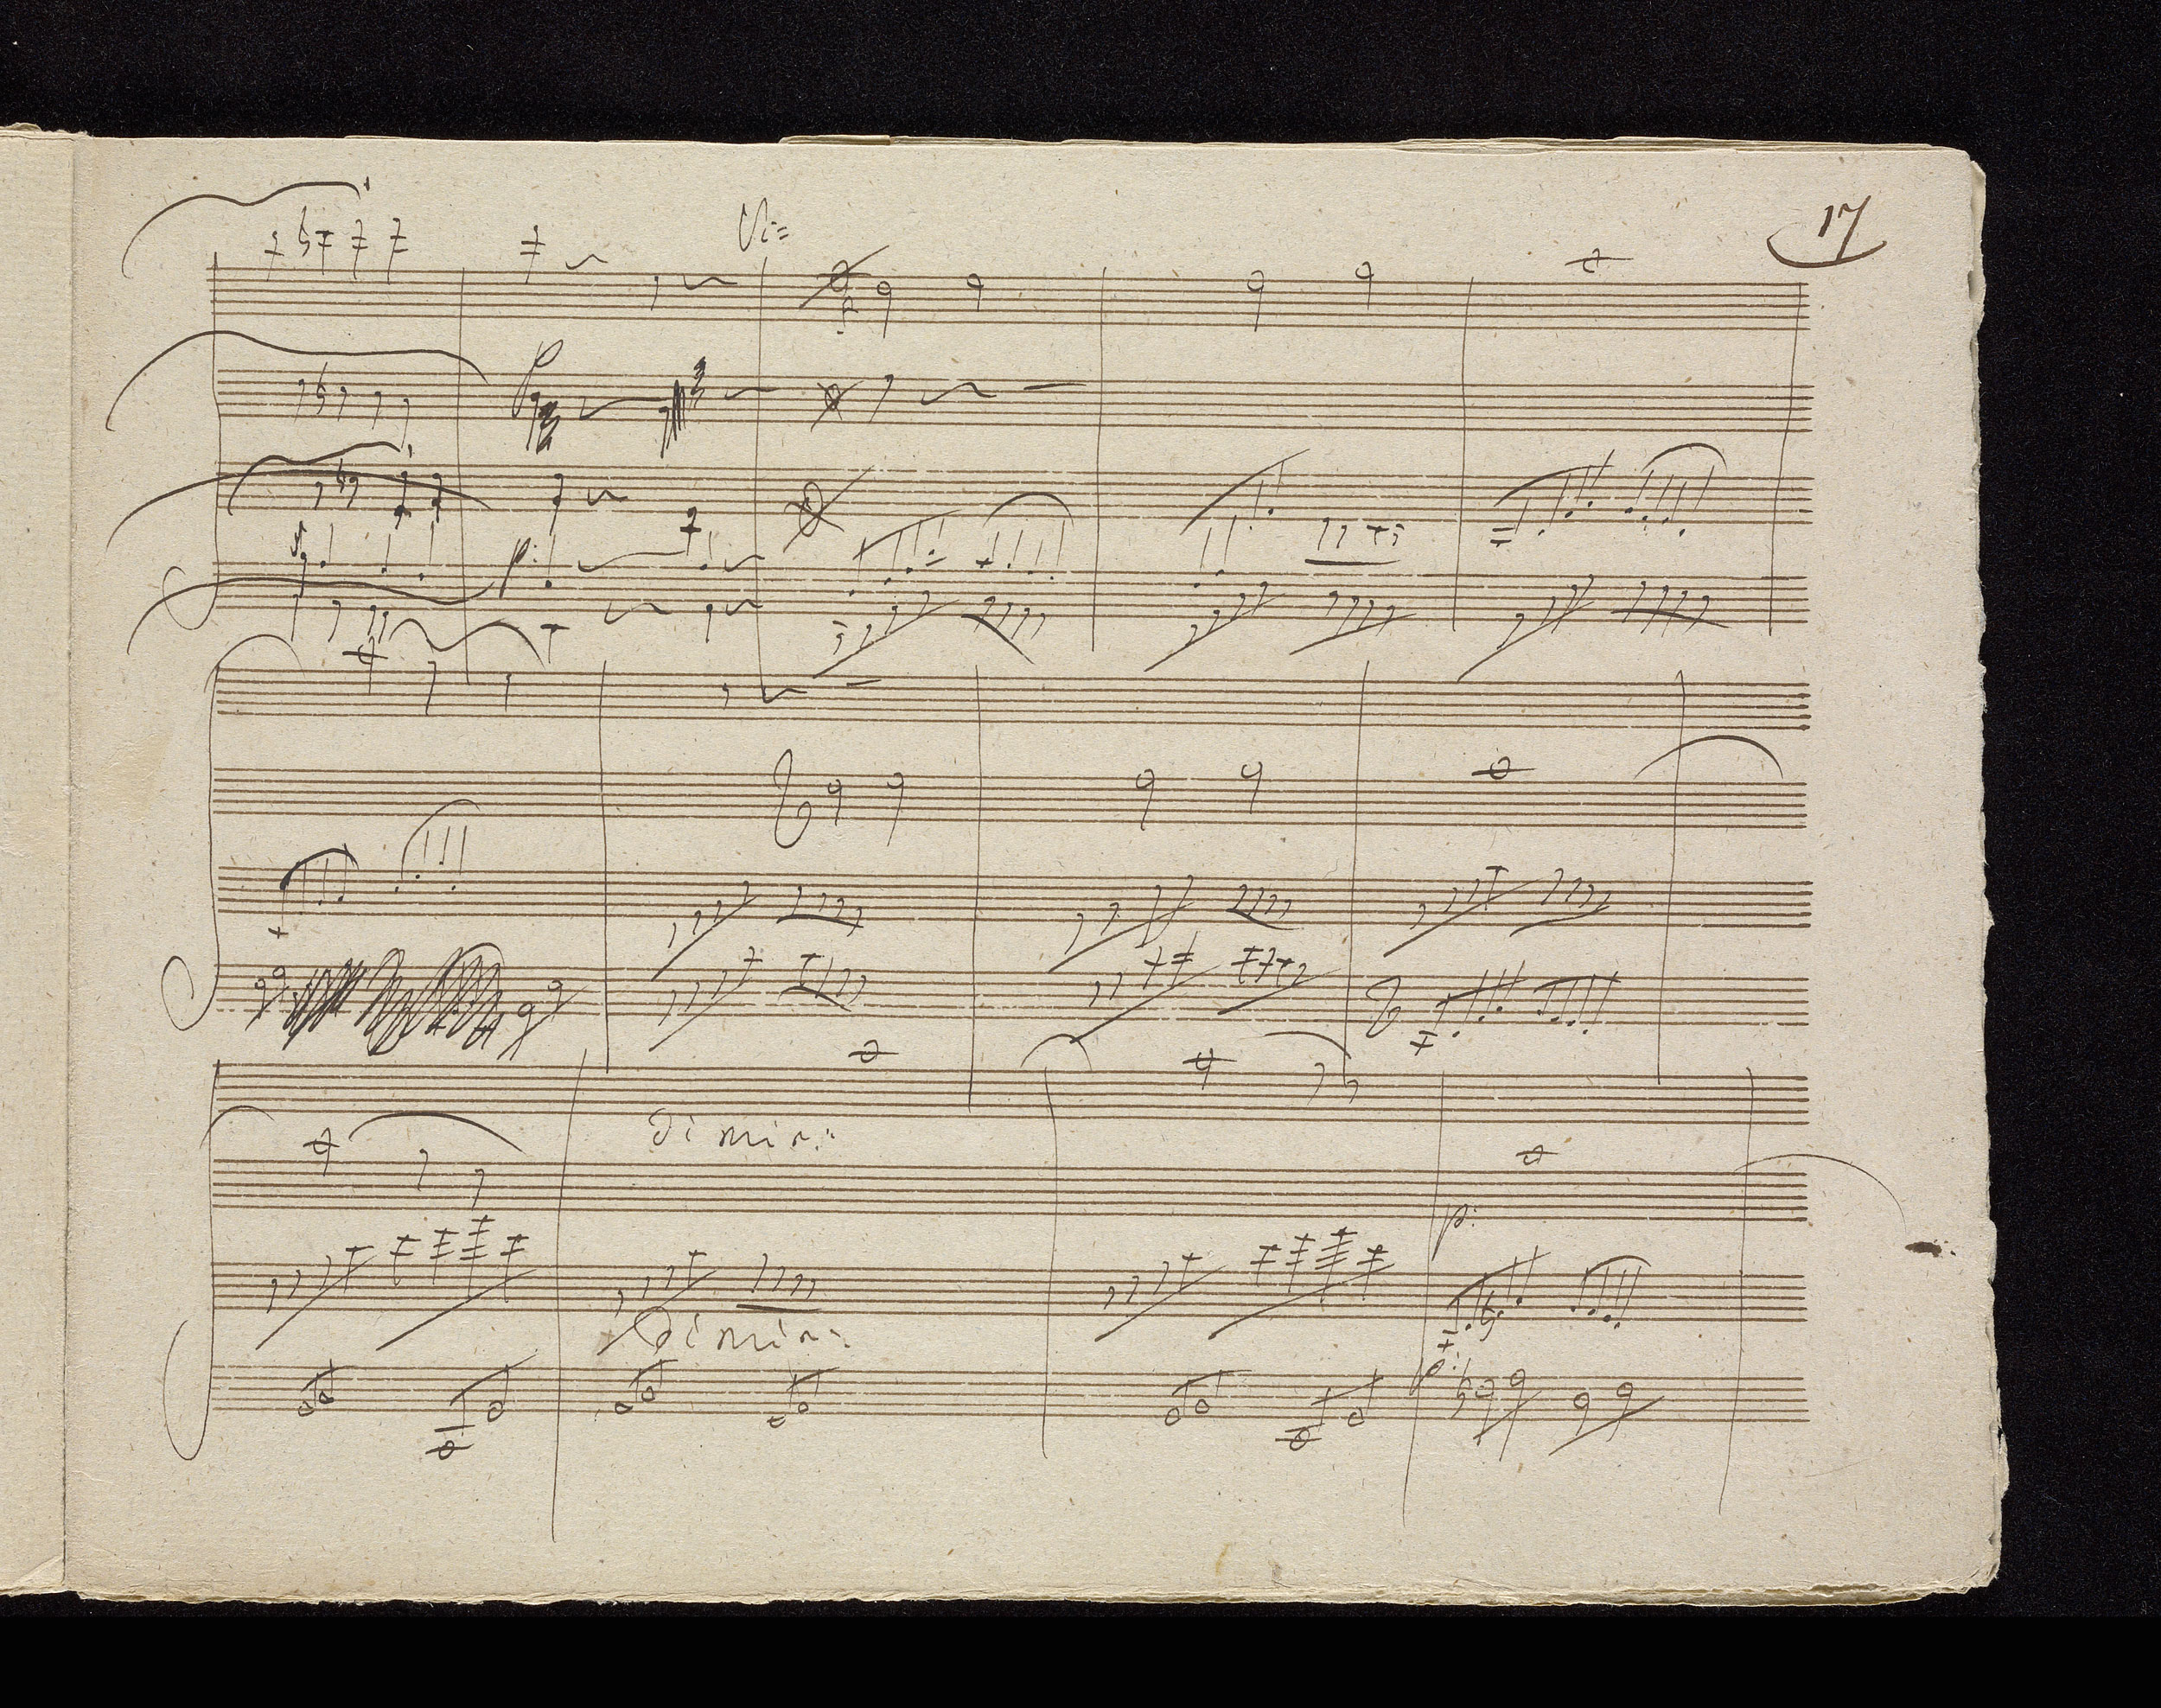 17
Vi=
p:
dimin:
p:
dimin:
p: